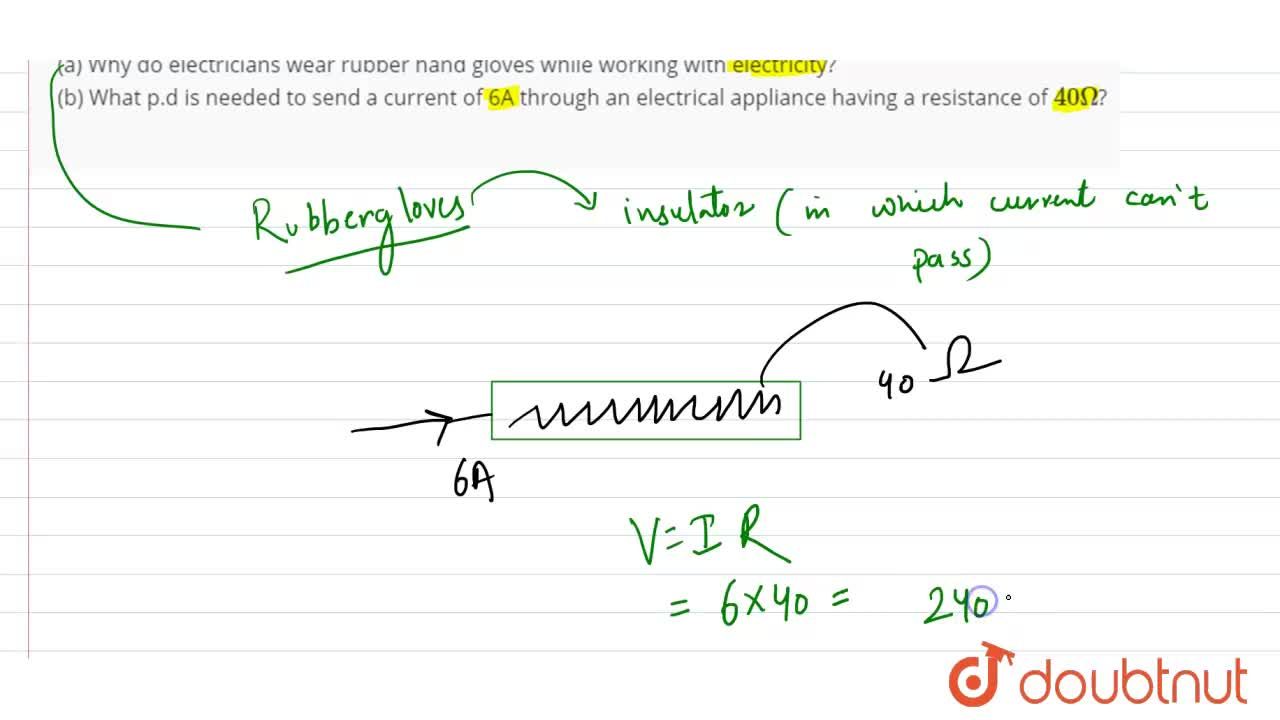 (a) Why do electricians wear rubber hand gloves while working with electricity?
(b) What p.d is needed to send a current of 6A through an electrical appliance having a resistance of 40Ω?
Rubber gloves
insulator (in which current can't
pass)
40 Ω
6A
V = I R
= 6 × 40 = 240
doubtnut